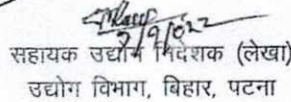 9/9/2022
सहायक उद्योग निदेशक (लेखा)
उद्योग विभाग, बिहार, पटना